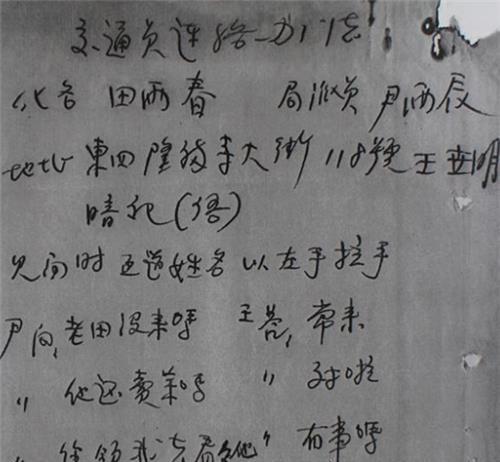 交通员连络办法
化名 田雨春 局派员 尹雨辰
地址 東四隆福寺大街 118號 王世明
暗记(语)
见面时 互道姓名 以左手拉手
尹问, 老田没来吗 王答, 常来
" 他还卖菜吗 " 对啦
" 你领我去看看他" 有事吗